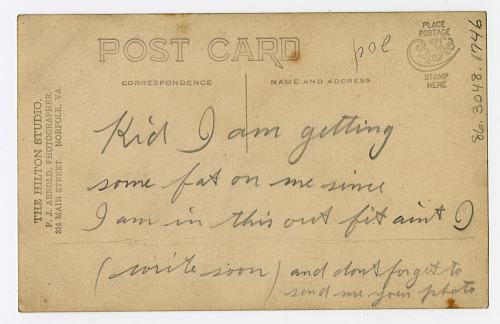 POST CARD
CORRESPONDENCE
NAME AND ADDRESS
PLACE
POSTAGE
STAMP
HERE
86.3048.1746
THE HILTON STUDIO,
F. J. ARNOLD, PHOTOGRAPHER,
314 MAIN STREET NORFOLK, VA.
Kid I am getting
some fat on me since
I am in this out fit aint I
(write soon) and dont forget to
send me your photo